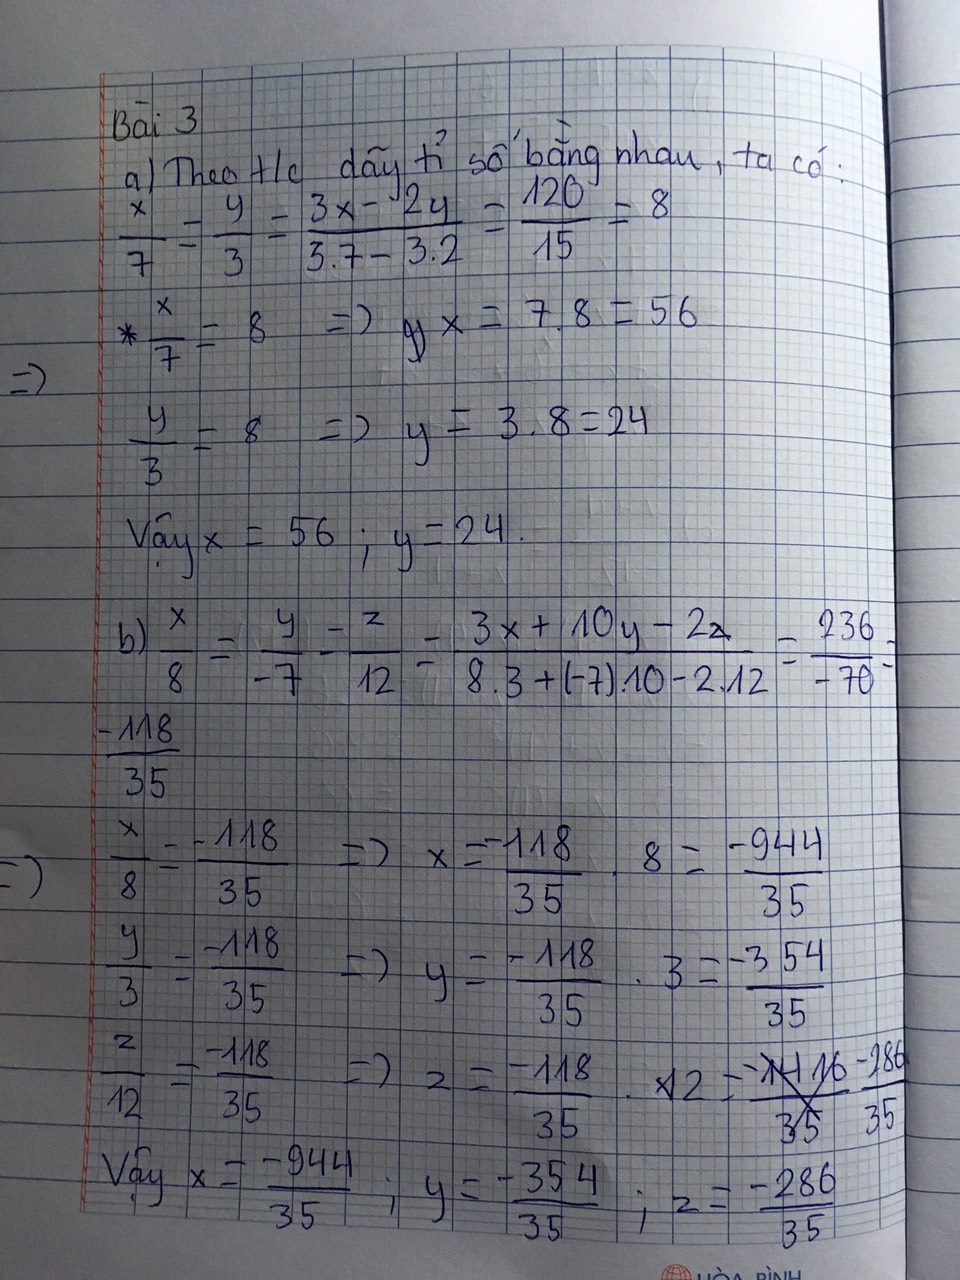 Bài 3
a) Theo t/c dãy tỉ số bằng nhau, ta có:
x/7 = y/3 = (3x - 2y)/(3.7 - 3.2) = 120/15 = 8
* x/7 = 8 => x = 7.8 = 56
=>
y/3 = 8 => y = 3.8 = 24
Vậy x = 56 ; y = 24.
b) x/8 = y/-7 = z/12 = (3x + 10y - 2z)/(8.3 + (-7).10 - 2.12) = 236/-70 =
-118/35
x/8 = -118/35 => x = -118/35 . 8 = -944/35
=>
y/3 = -118/35 => y = -118/35 . 3 = -354/35
z/12 = -118/35 => z = -118/35 . 12 = -1416/35 -286/35
Vậy x = -944/35 ; y = -354/35 ; z = -286/35
HÒA BÌNH